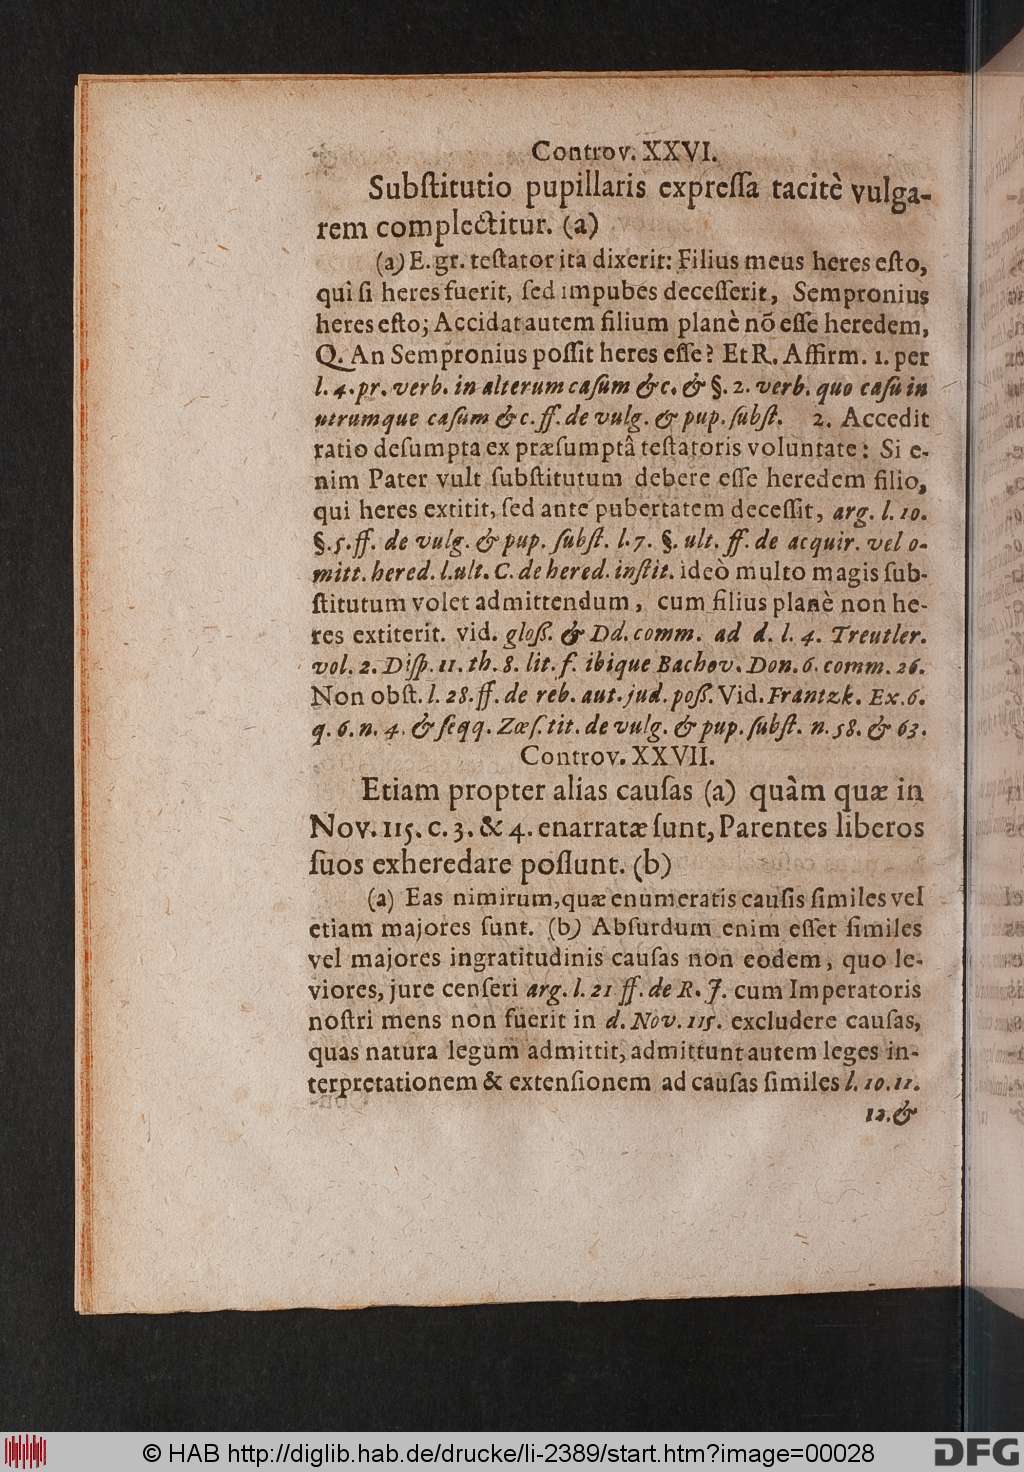 Controv. XXVI.
Subſtitutio pupillaris expreſſa tacitè vulga-
rem complectitur. (a)
(a) E. gr. teſtator ita dixerit: Filius meus heres eſto,
qui ſi heres fuerit, ſed impubes deceſſerit, Sempronius
heres eſto; Accidat autem filium planè nō eſſe heredem,
Q. An Sempronius poſſit heres eſſe? Et R. Affirm. 1. per
l. 4. pr. verb. in alterum caſum &c. & §. 2. verb. quo caſu in
utrumque caſum &c. ff. de vulg. & pup. ſubſt. 2. Accedit
ratio deſumpta ex præſumptâ teſtatoris voluntate: Si e-
nim Pater vult ſubſtitutum debere eſſe heredem filio,
qui heres extitit, ſed ante pubertatem deceſſit, arg. l. 10.
§. 5. ff. de vulg. & pup. ſubſt. l. 7. §. ult. ff. de acquir. vel o-
mitt. hered. l. ult. C. de hered. inſtit. ideò multo magis ſub-
ſtitutum volet admittendum, cum filius planè non he-
res extiterit. vid. gloſſ. & Dd. comm. ad d. l. 4. Treutler.
vol. 2. Diſp. 11. th. 8. lit. f. ibique Bachov. Don. 6. comm. 26.
Non obſt. l. 28. ff. de reb. aut. jud. poſſ. Vid. Frantzk. Ex. 6.
q. 6. n. 4. & ſeqq. Zœſ. tit. de vulg. & pup. ſubſt. n. 58. & 63.
Controv. XXVII.
Etiam propter alias cauſas (a) quàm quæ in
Nov. 115. c. 3. & 4. enarratæ ſunt, Parentes liberos
ſuos exheredare poſſunt. (b)
(a) Eas nimirum, quæ enumeratis cauſis ſimiles vel
etiam majores ſunt. (b) Abſurdum enim eſſet ſimiles
vel majores ingratitudinis cauſas non eodem, quo le-
viores, jure cenſeri arg. l. 21 ff. de R. J. cum Imperatoris
noſtri mens non fuerit in d. Nov. 115. excludere cauſas,
quas natura legum admittit, admittunt autem leges in-
terpretationem & extenſionem ad cauſas ſimiles l. 10. 11.
12. &
© HAB http://diglib.hab.de/drucke/li-2389/start.htm?image=00028
DFG